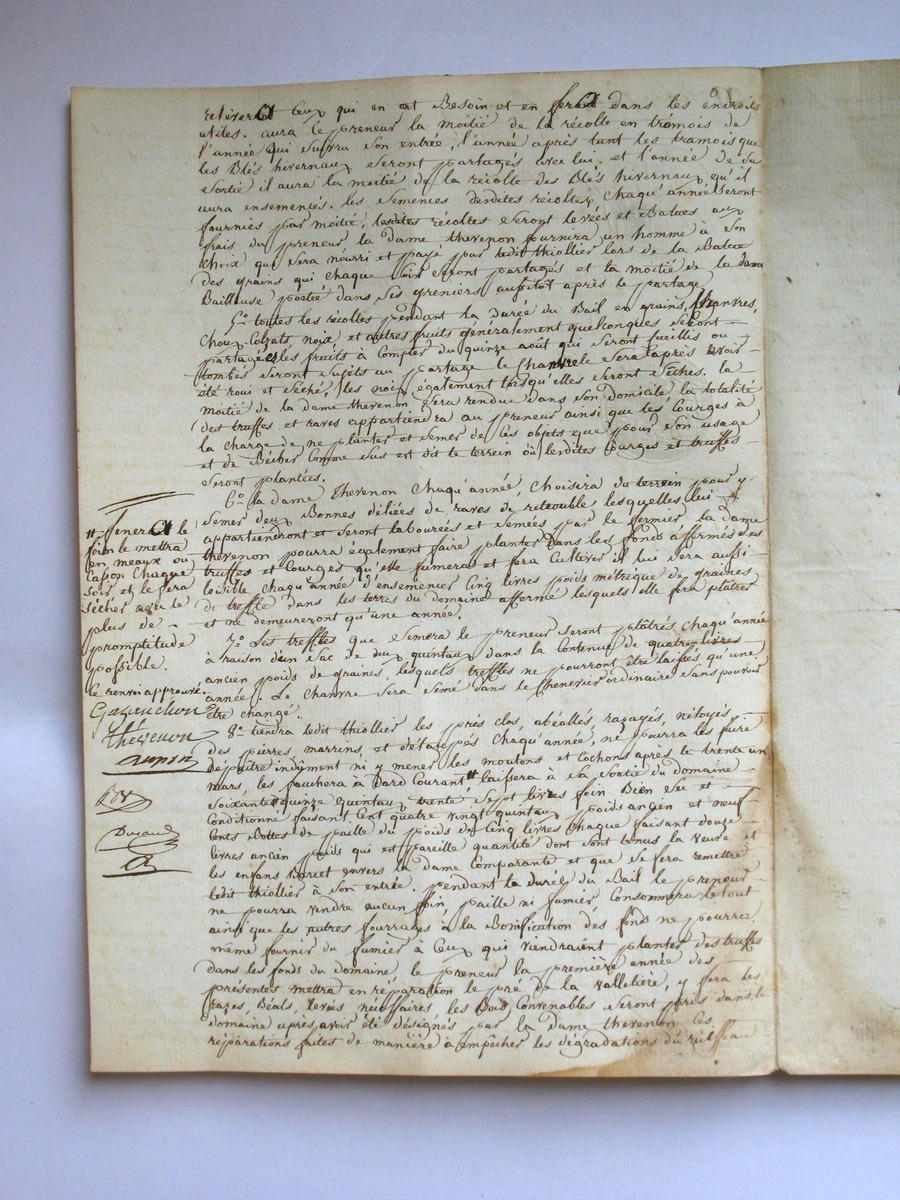 relèvera Ceux qui en ont Besoin et en fera dans les endroits
utiles. aura le preneur la moitié de la récolte en trémois de
l'année qui suivra son entrée, l'année après tant les tramois que
les Blés hivernaux seront partagés avec lui. et l'année de sa
sortie il aura la moitié de la récolte des Blés hivernaux qu'il
aura ensemencés. les semences desdites récoltes, Chaqu'année seront
fournies par moitié, lesdites récoltes seront levées et Batues aux
frais du preneur, la dame thevenon fournira un homme à son
Choix qui sera nourri et payé par ledit thiollier lors de la Batue
des grains qui chaque soir seront partagés et la moitié de la dame
Bailleuse portée dans ses greniers aussitôt après le partage.
5° toutes les récoltes pendant la durée du Bail en grains, Chanvres,
Choux Colzats, noix et autres fruits généralement quelconques seront
partagées les fruits à Compter du quinze août qui seront cueillis ou
tombés seront sujets au partage le Chanvre le sera après avoir
été roui et séché, les noix également lorsqu'elles seront sèches. la
moitié de la dame thevenon sera rendue dans son domicile, la totalité
des truffes et raves appartiendra au preneur ainsi que les Courges à
la charge de ne planter et semer de ces objets que pour son usage
et de Bécher Comme sus est dit le terrein où lesdites Courges et truffes
seront plantées.
6° la Dame Thevenon Chaqu'année, Choisira du terrein pour y
semer deux Bonnes de raves de retouble lesquelles lui
appartiendront et seront labourées et semées par le fermier, la dame
thevenon pourra également faire planter dans les fonds affermés ses
truffes et Courges qu'elle fumera et fera Cultiver il lui sera aussi
loisible Chaqu'année d'ensemencer Cinq livres poids métrique de graines
de treffle dans les terres du domaine affermé lesquels elle fera plâtrer
et ne demeureront qu'une année.
7° Les treffles que semera le preneur seront plâtrés chaqu'année
à raison d'un sac de deux quintaux dans la Contenue de quatre livres
ancien poids de graines, lesquels treffles ne pourront être laissés qu'une
année. Le Chanvre sera semé dans le Chenevier ordinaire sans pouvoir
être changé.
8° tiendra ledit thiollier les prés clos, abéallés, razayés, nétoyés
des pierres, marrins, et détaupés Chaqu'année, ne pourra les faire
dépaître indûment ni y mener les moutons et Cochons après le trente un
mars, les fauchera à Dard Courant # laissera à sa sortie du domaine
soixante quinze quintaux trente sept livres foin Bien sec et
Conditionné faisant Cent quatre vingt quintaux poids ancien et neuf
Cents Bottes de paille du poids de Cinq livres Chaque faisant douze
livres ancien poids qui est pareille quantité dont sont tenus la veuve et
les enfans envers la dame Comparante et que se fera remettre
ledit thiollier à son entrée. pendant la durée du Bail le preneur
ne pourra vendre aucun foin, paille ni fumier, Consommera le tout
ainsi que les autres fourrages à la Bonification des fonds ne pourra
même fournir du fumier à Ceux qui viendraient planter des truffes
dans les fonds du domaine, le preneur la première année des
présentes mettra en réparation le pré de la Valletière, y fera les
razes, Béals, levées nécessaires, les Bois Convenables seront pris dans le
domaine après avoir été désignés par la dame thevenon Ces
réparations faites de manière à empêcher les dégradations du ruisseau
# fenera le
foin le mettra
en meaux ou
Casson Chaque
soir et le fera
sécher avec le
plus de
promptitude
possible.
le renvoi approuvé.
thevenon
Durand